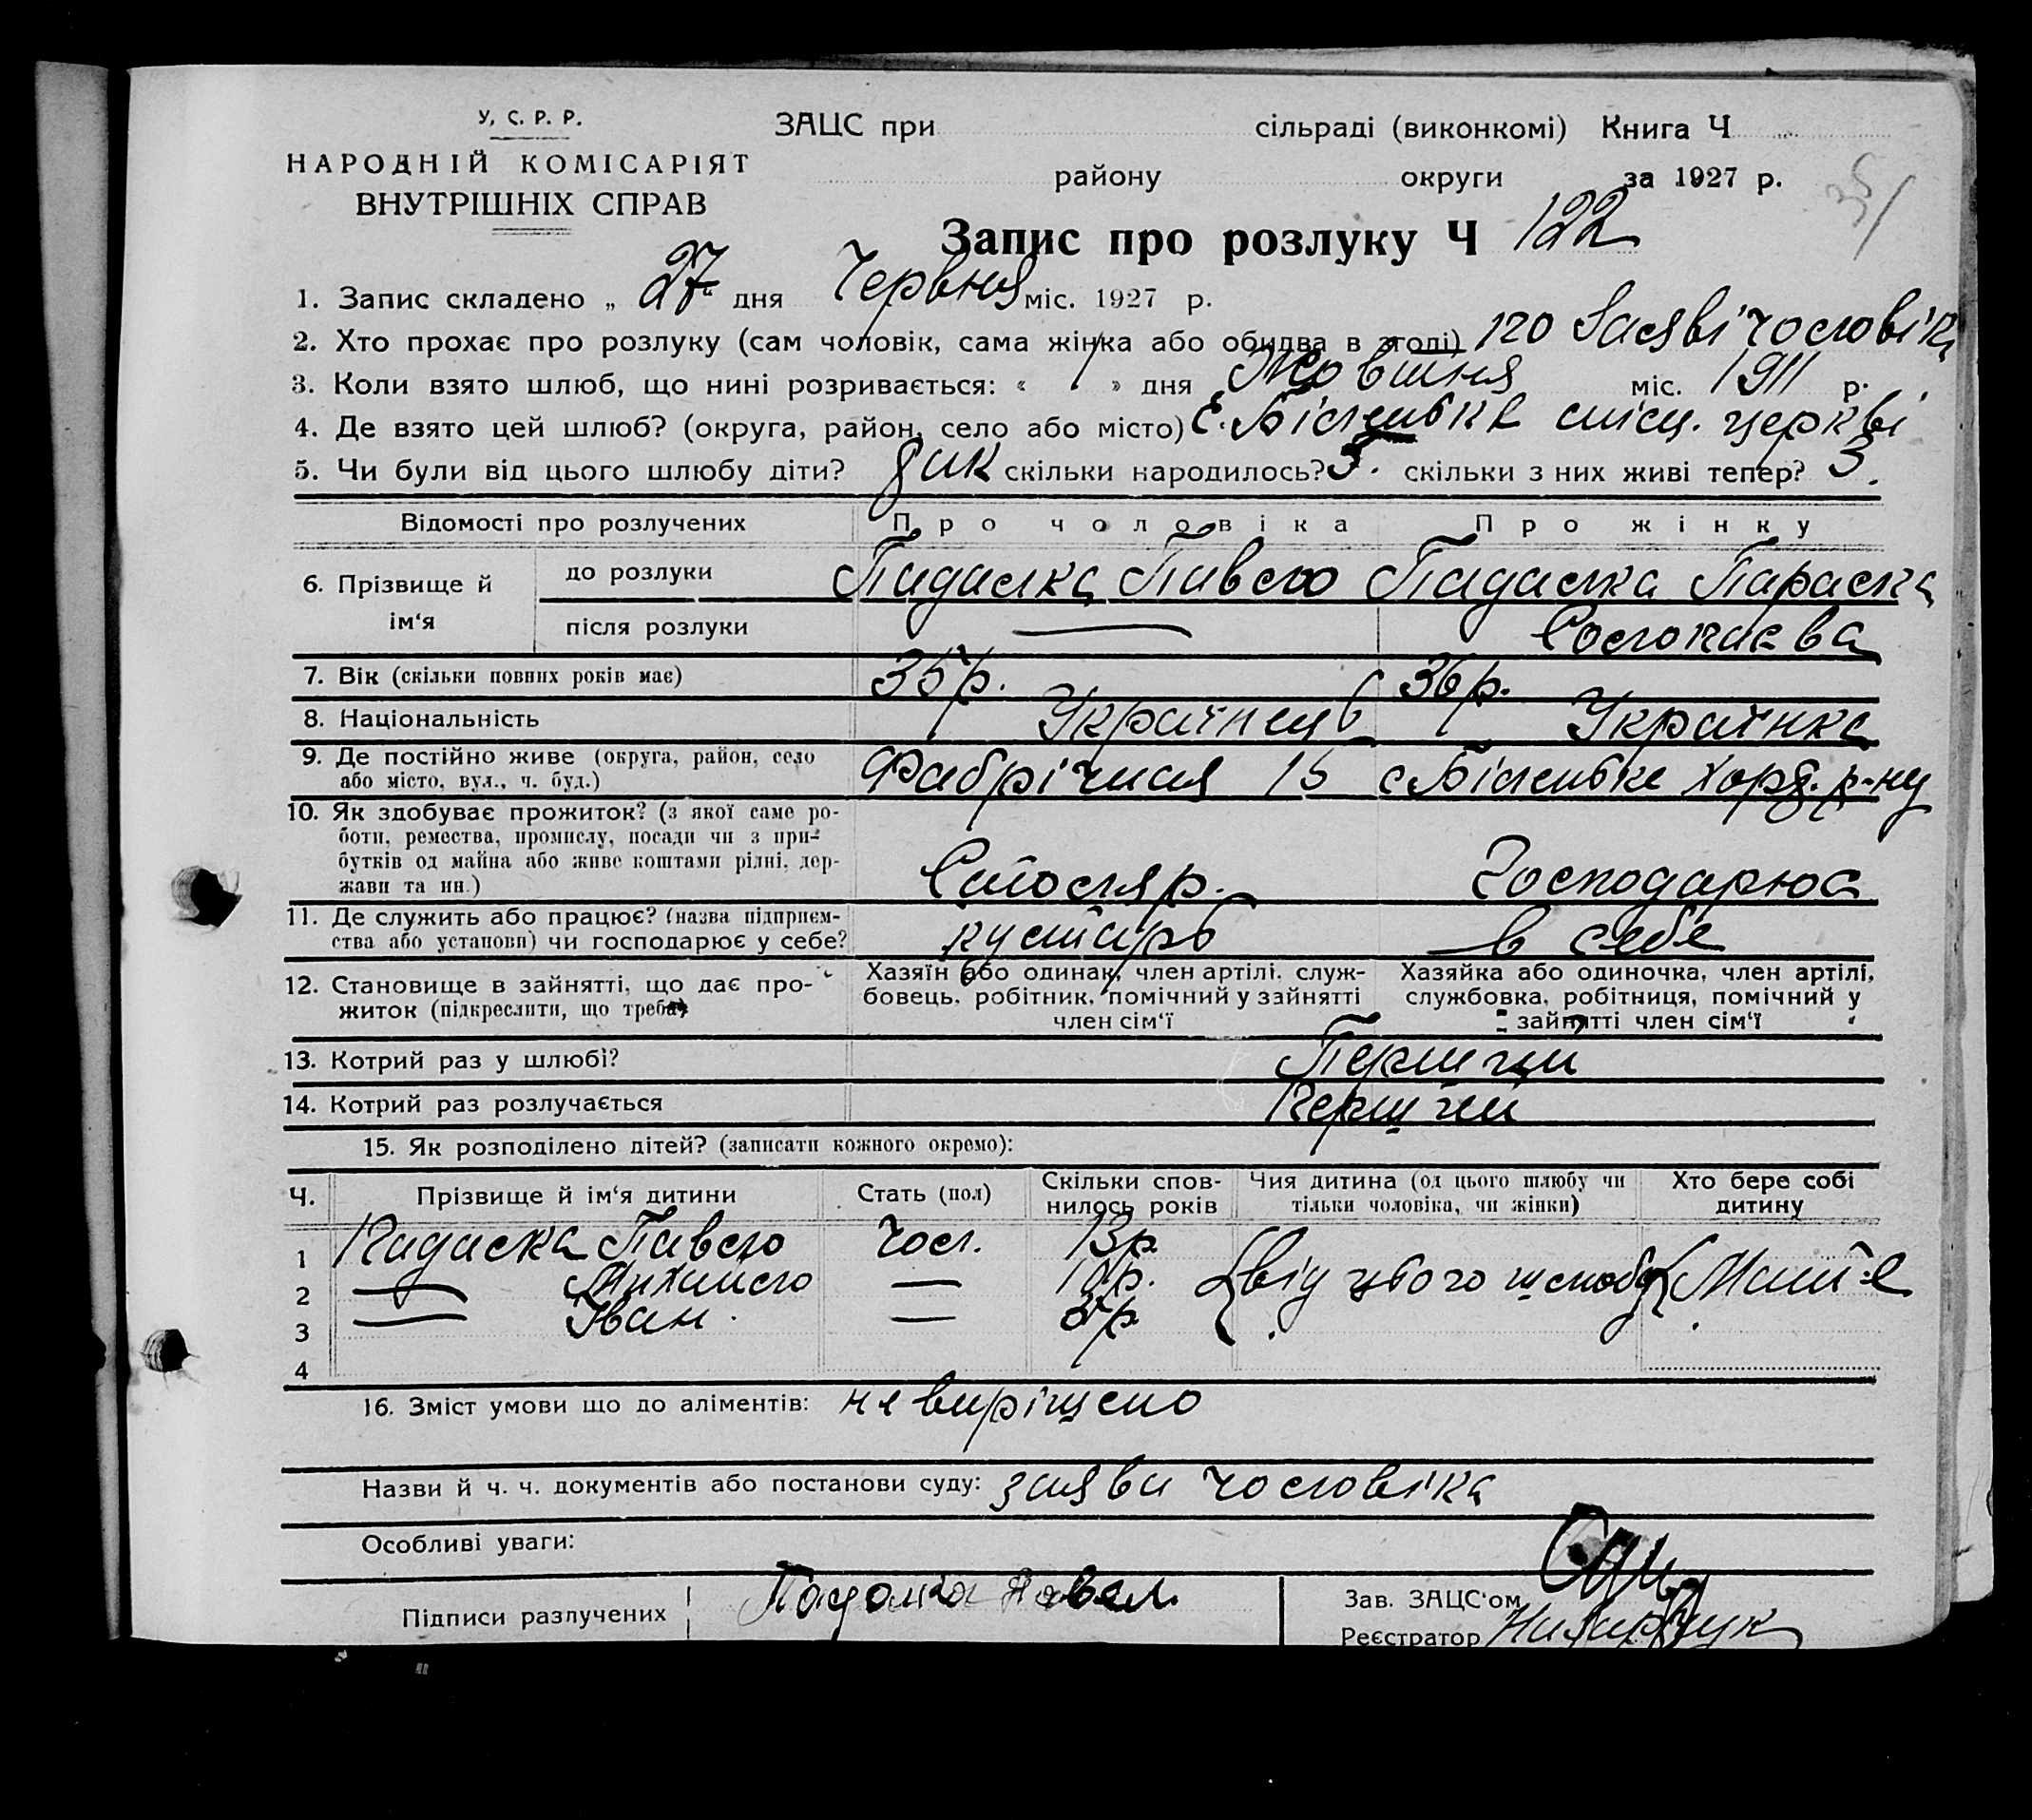 У, С. Р. Р.
НАРОДНІЙ КОМІСАРІЯТ
ВНУТРІШНІХ СПРАВ
ЗАЦС при сільраді (виконкомі) Книга Ч
району округи за 1927 р.
Запис про розлуку Ч 122
1. Запис складено „ 27 " дня Червня міс. 1927 р.
2. Хто прохає про розлуку (сам чоловік, сама жінка або обидва в згоді) по заяві чоловіка
3. Коли взято шлюб, що нині розривається: « 1 » дня Жовтня міс. 1911 р.
4. Де взято цей шлюб? (округа, район, село або місто) с. Біленьке місц. церкві
5. Чи були від цього шлюбу діти? так скільки народилось? 3. скільки з них живі тепер? 3.
Відомості про розлучених Про чоловіка Про жінку
6. Прізвище й ім'я
до розлуки Падалка Павло Падалка Параска
після розлуки —
7. Вік (скільки повних років має) 35 р. 36 р.
8. Національність Українець Українка
9. Де постійно живе (округа, район, село або місто, вул., ч. буд.) Фабрічная 15 с Біленьке Хорт. р-ну
10. Як здобуває прожиток? (з якої саме роботи, ремества, промислу, посади чи з прибутків од майна або живе коштами рідні, держави та ин.) Господарюе
11. Де служить або працює? (назва підприємства або установи) чи господарює у себе? кустарь в себе
12. Становище в зайнятті, що дає прожиток (підкреслити, що треба)
Хазяїн або одинак, член артілі, службовець, робітник, помічний у зайнятті член сім'ї
Хазяйка або одиночка, член артілі, службовка, робітниця, помічний у зайнятті член сім'ї
13. Котрий раз у шлюбі? Перший
14. Котрий раз розлучається Перший
15. Як розподілено дітей? (записати кожного окремо):
Ч. Прізвище й ім'я дитини Стать (пол) Скільки сповнилось років Чия дитина (од цього шлюбу чи тільки чоловіка, чи жінки) Хто бере собі дитину
1 Падалка Павло Чол. 13 р.
2 — Михайло — 10 р. від цього шлюбу Мати
3 — Іван —
4
16. Зміст умови що до аліментів: не вирішено
Назви й ч. ч. документів або постанови суду: заява чоловіка
Особливі уваги:
Підписи разлучених Падалка Павел.
Зав. ЗАЦС'ом
Реєстратор